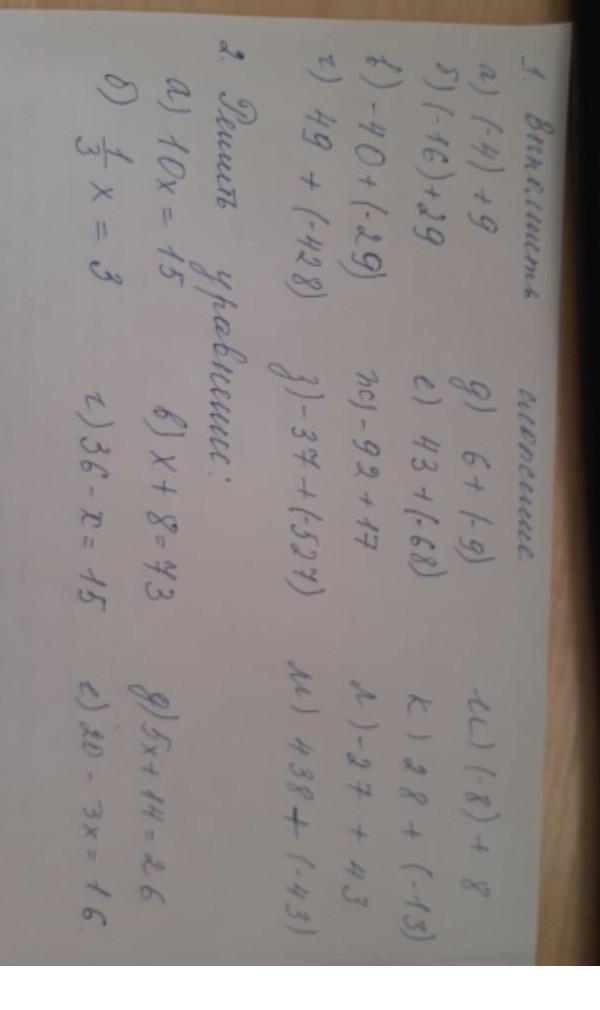 1. Выполнить сложение
а) (-4) + 9 д) 6 + (-9) и) (-8) + 8
б) (-16) + 29 е) 43 + (-68) к) 28 + (-13)
в) -40 + (-29) ж) -92 + 17 л) -27 + 43
г) 49 + (-428) з) -37 + (-527) м) 438 + (-43)
2. Решить уравнение:
а) 10х = 15 в) х + 8 = 73 д) 5х + 14 = 26
б) 1/3 х = 3 г) 36 - х = 15 е) 20 - 3х = 16.